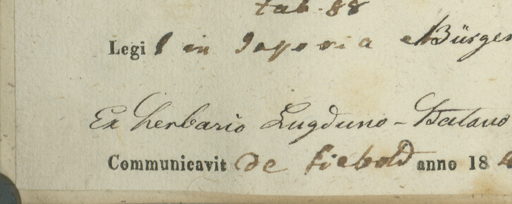 tab. 88
Legi t in Japonia Bürger
Ex herbario Lugduno-Batavo
Communicavit de Siebold anno 184